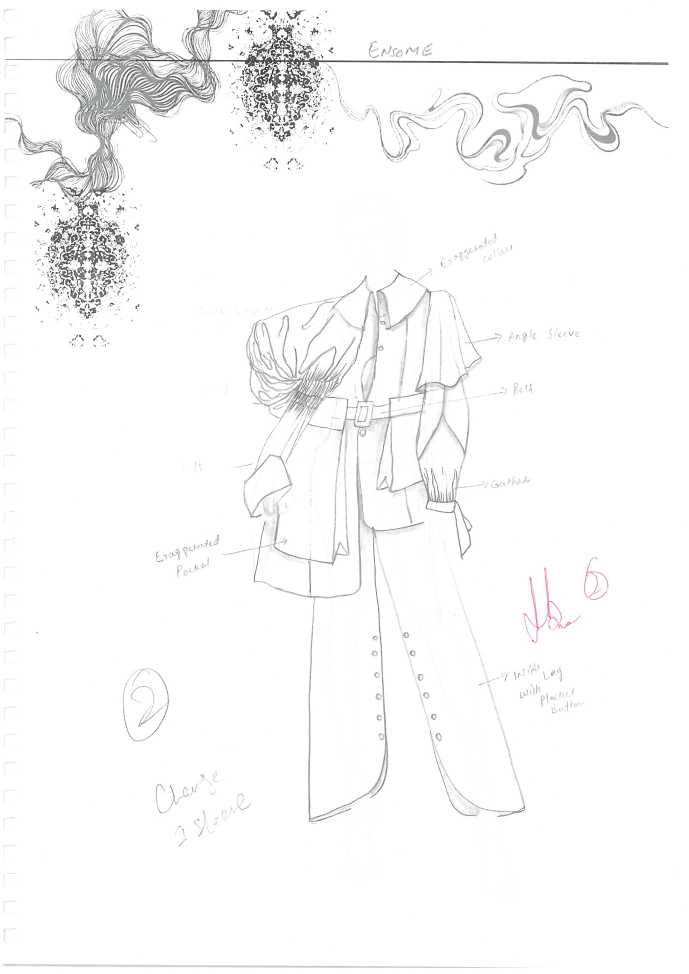 ENSOME
Exaggerated
collar
Angle Sleeve
Belt
Gather
Exaggerated
Pocket
2
2
Inside Leg
with
Placket
Button
Change
1 Sleeve